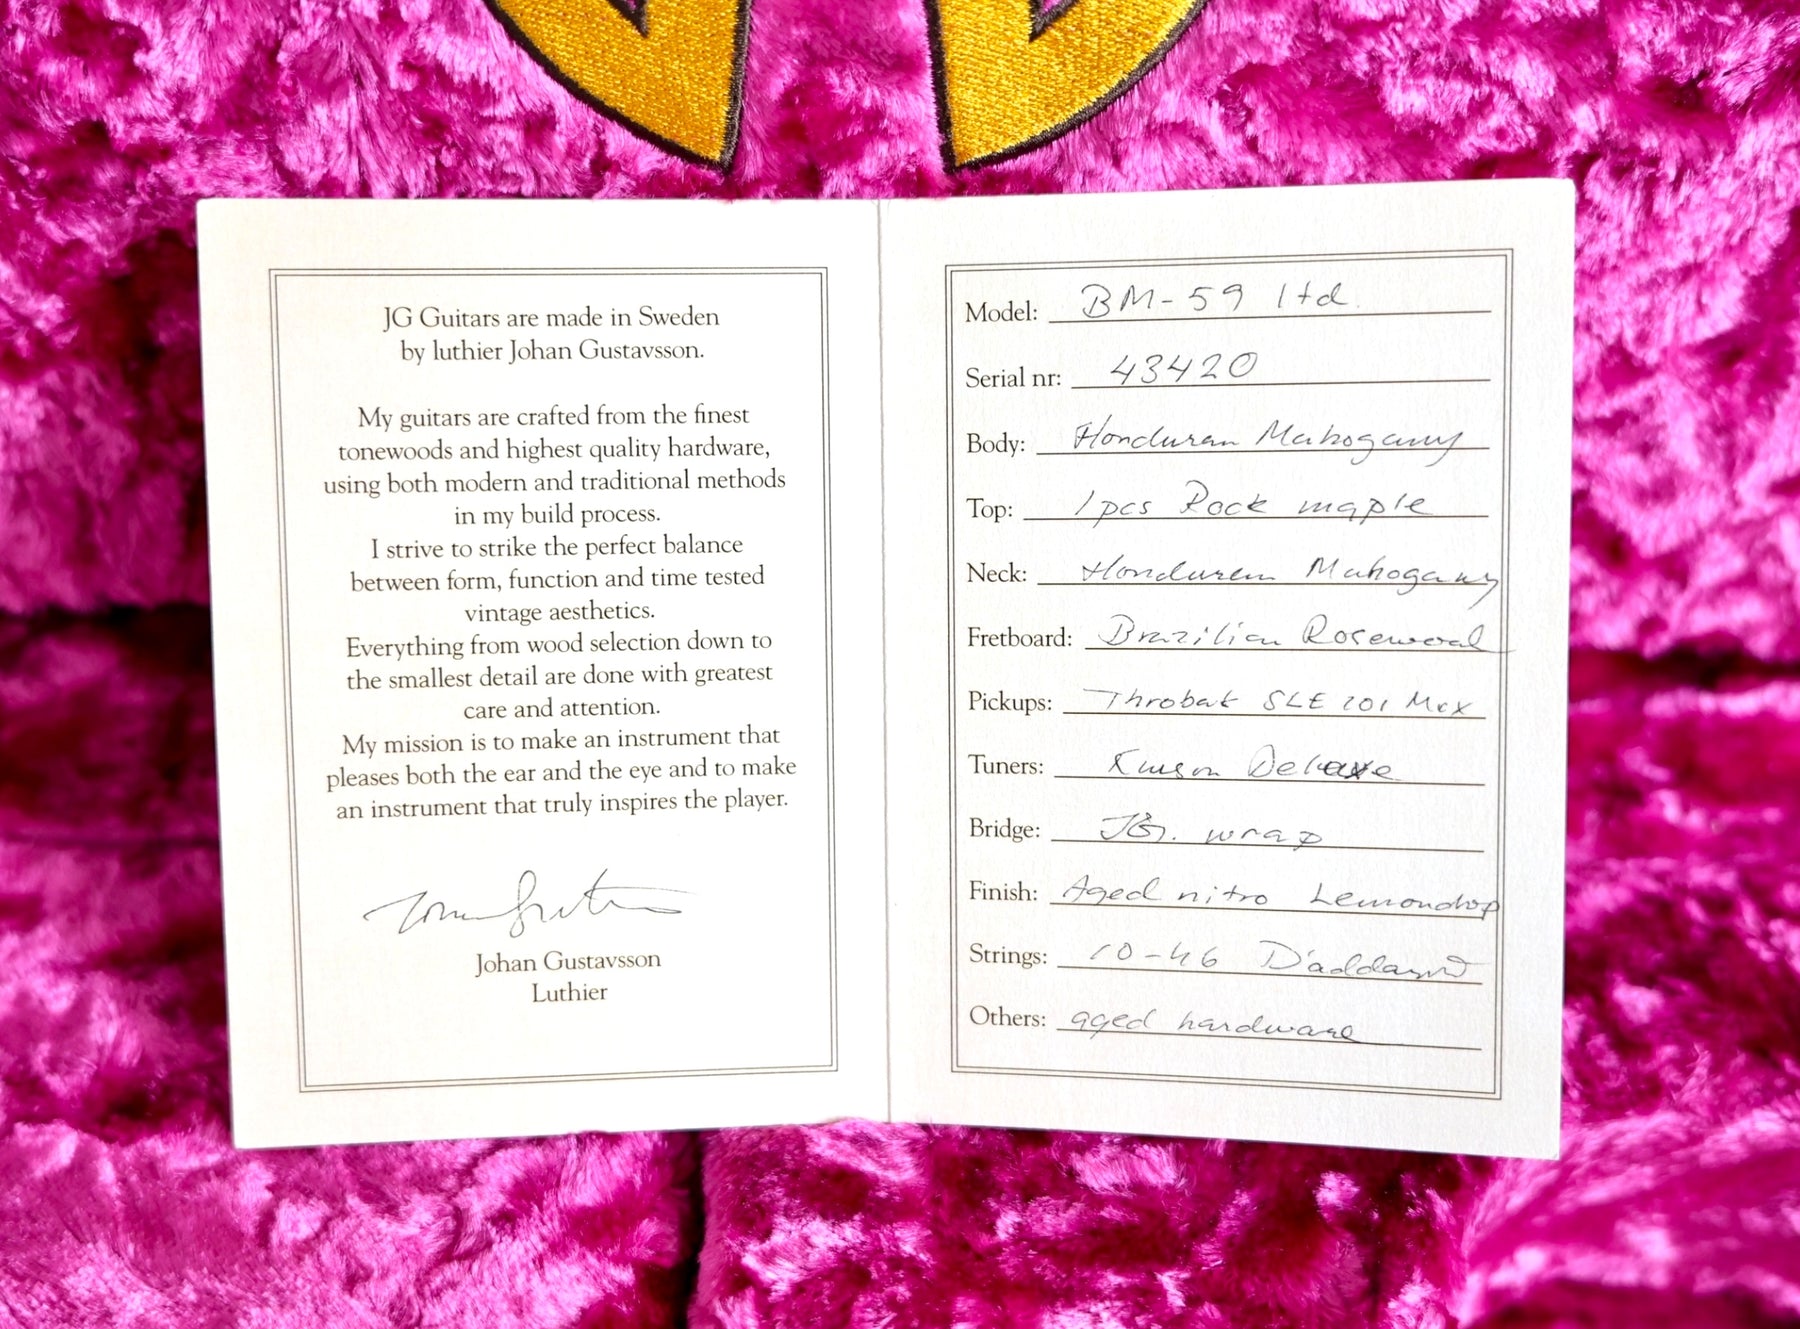 JG Guitars are made in Sweden
by luthier Johan Gustavsson.
My guitars are crafted from the finest
tonewoods and highest quality hardware,
using both modern and traditional methods
in my build process.
I strive to strike the perfect balance
between form, function and time tested
vintage aesthetics.
Everything from wood selection down to
the smallest detail are done with greatest
care and attention.
My mission is to make an instrument that
pleases both the ear and the eye and to make
an instrument that truly inspires the player.
Johan Gustavsson
Luthier
Model: BM-59 ltd.
Serial nr: 43420
Body: Honduran Mahogany
Top: 1pcs Rock maple
Neck: Honduren Mahogany
Fretboard: Brazilian Rosewood
Pickups: Throbak SLE 101 Mxx
Tuners: Deluxe
Bridge: JG. wrap
Finish: Aged nitro Lemondrop
Strings: 10-46 D'addario
Others: aged hardware